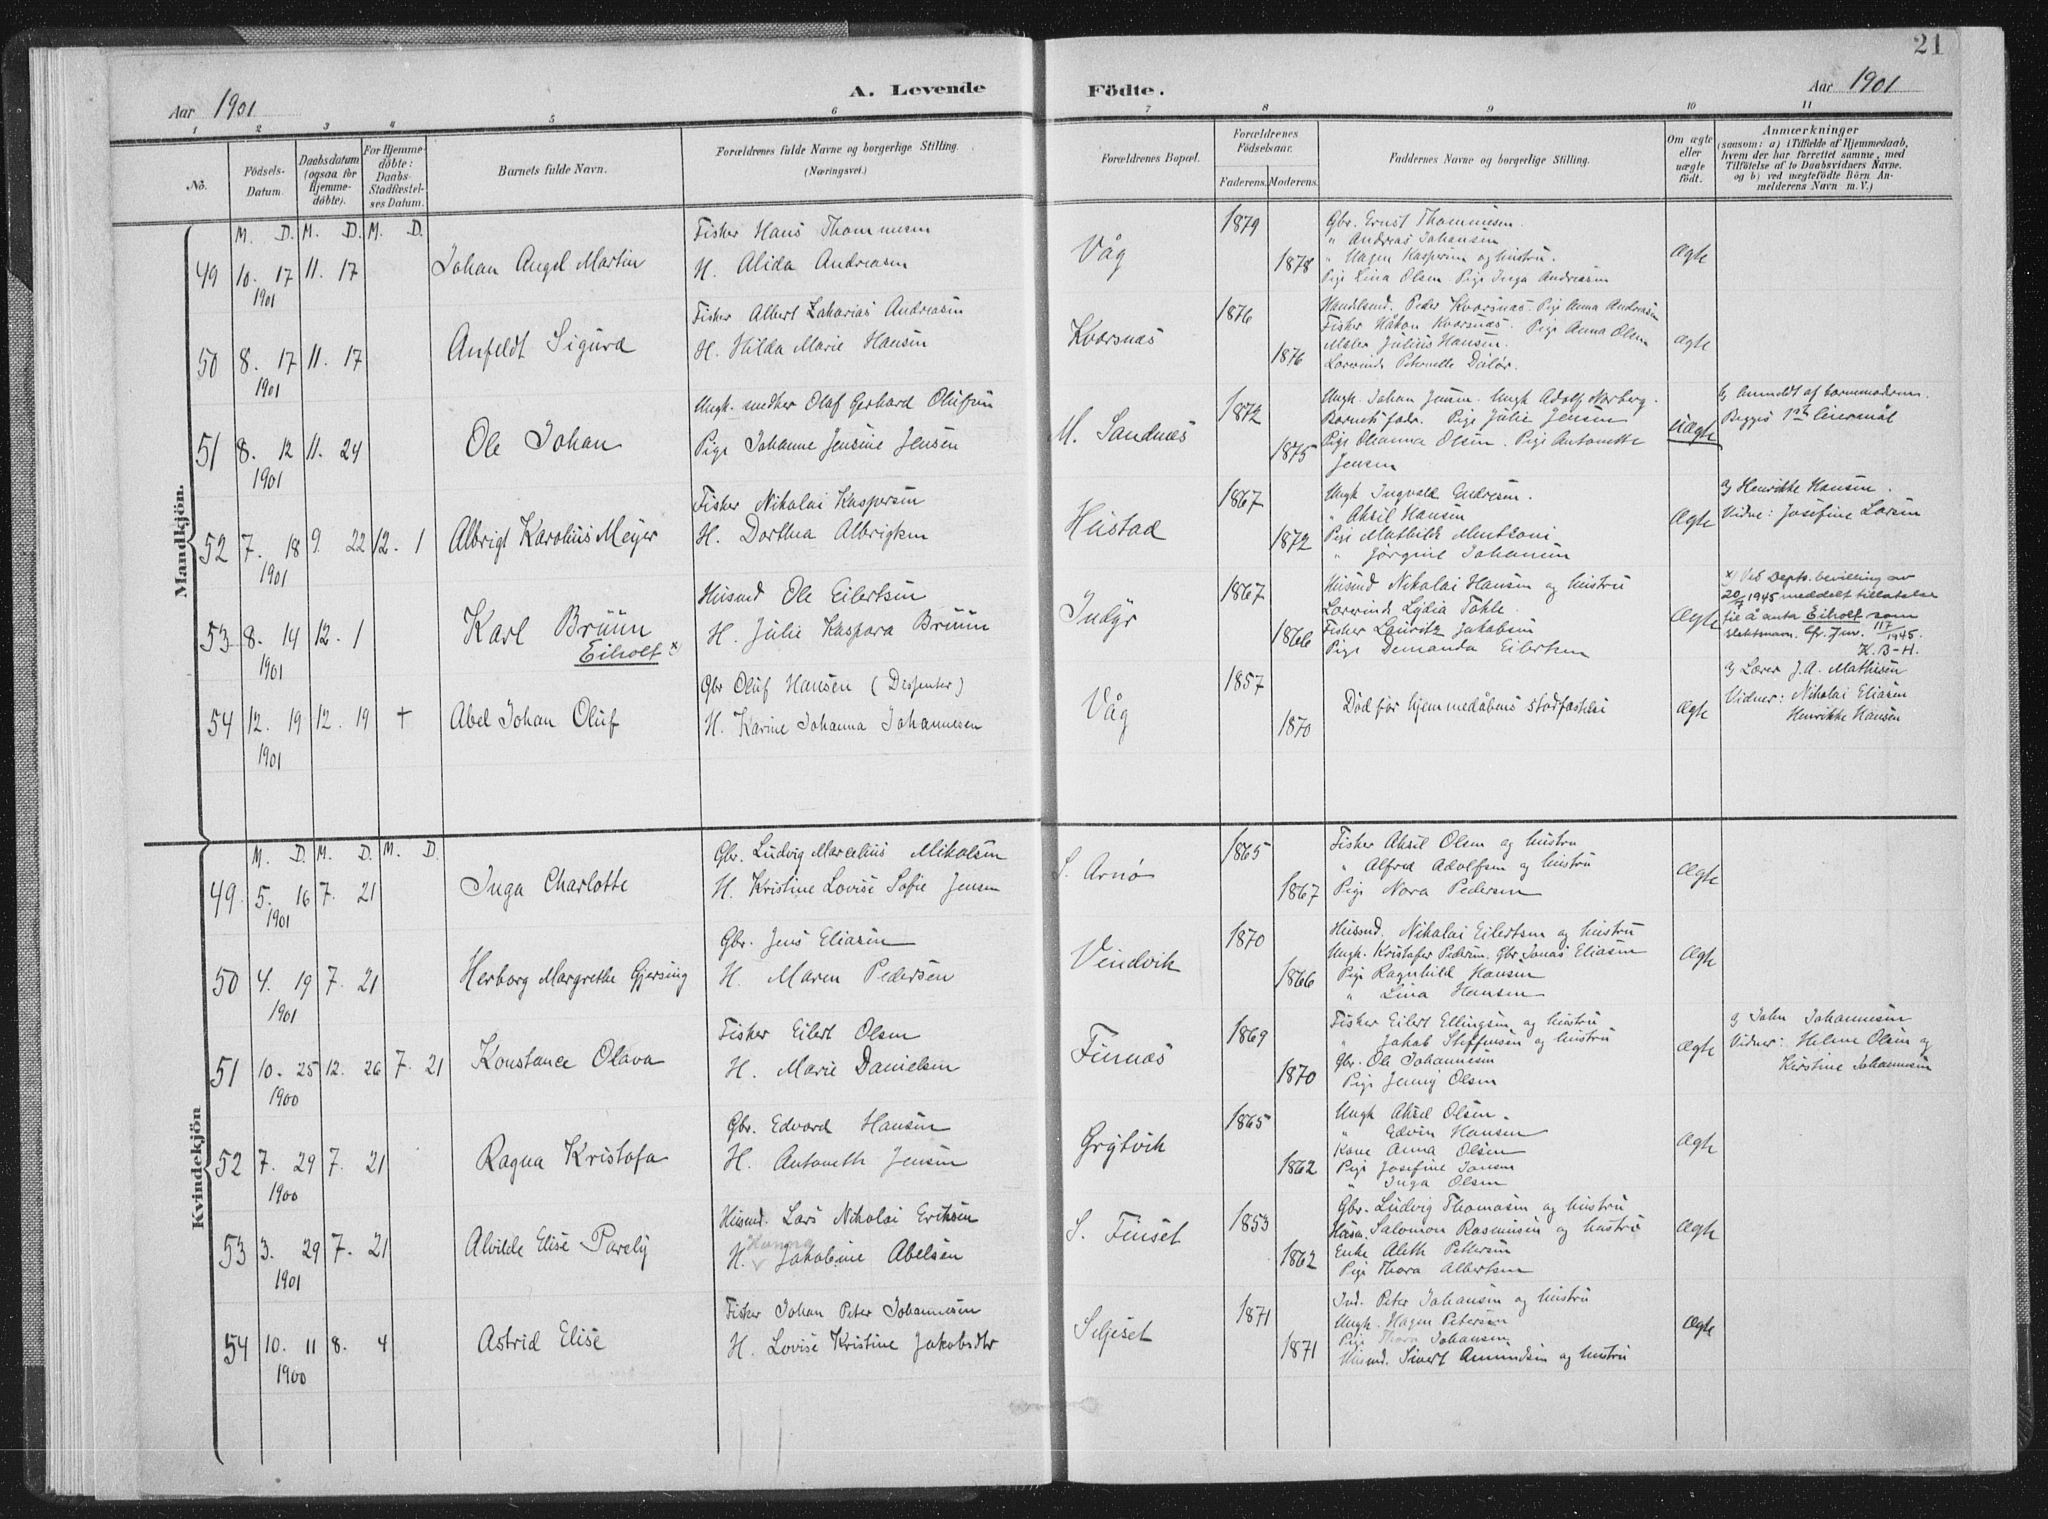 21
Aar 1901
A. Levende
Födte.
Aar 1901
1 2 3 4 5 6 7 8 9 10 11
No.
Födsels-
Datum.
Daabsdatum
(ogsaa for
Hjemme-
döbte).
For Hjemme-
döbte:
Daabs-
Stadfæstel-
ses Datum.
Barnets fulde Navn.
Forældrenes fulde Navne og borgerlige Stilling.
(Næringsvei.)
Forældrenes Bopæl.
Forældrenes
Födselsaar.
Faderens. Moderens.
Faddernes Navne og borgerlige Stilling.
Om ægte
eller
uægte
födt.
Anmærkninger
(saasom: a) i Tilfælde af Hjemmedaab,
hvem der har forrettet samme, med
Tilföielse af to Daabsvidners Navne.
og b) ved uægtefödte Börn An-
melderens Navn m. V.)
Mandkjön.
M. D. M. D. M. D.
49 10. 17 11. 17
1901
Johan Angel Martin
Fisker Hans Thommesen
H. Alida Andreasen
Våg
1879
1878
Gbr. Ernst Thommesen.
" Andreas Johansen
" Hagen Kaspersen og hustru.
Pige Lina Olsen Pige Inga Andreasen
Ægte
50 8. 17 11. 17
1901
Anfeldt Sigurd
Fisker Albert Zakarias Andreasen
H. Hilda Marie Hansen
Kvarsnæs
1876
1876
Handelsmd. Peder Kvarsnæs. Pige Anna Andreasen
Fisker Håkon Kvarsnæs. Pige Anna Olsen
Maler Julius Hansen.
Lærerinde Peternelle Daløe.
Ægte
51 8. 12 11. 24
1901
Ole Johan
Ungk. snedker Olaf Gerhard Olufsen
Pige Johanne Jensine Jensen
M. Sandnæs
1872
1875
Ungk. Johan Jensen. Ungk Adolf Norberg.
Barnets fader. Pige Julie Jensen
Pige Olianna Olsen. Pige Antonette
Jensen
uægte
b) Anmeldt af barnemoderen.
Begges 1ste leiermål
52 7. 18 9. 22 12. 1
1901
Albrigt Karolius Meyer
Fisker Nikolai Kaspersen
H. Dorthea Albrigtsen
Hustad
1867
1872
Ungk Ingvald Endresen.
" Aksel Hansen
Pige Mathilde Mentzoni
" Jørgine Johansen
Ægte
a) Henrikke Hansen.
Vidne: Josefine Larsen
53 8. 14 12. 1
1901
Karl Bruun
Eiholt x)
Husmd Ole Eilertsen
H. Julie Kaspara Bruun
Indyr
1867
1866
Husmd Nikolai Hansen og hustru
Lærerinde Lydia Fahle.
Fisker Lauritz Jakobsen
Pige Demanda Eilertsen
Ægte
x) Ved Depts. bevilling av
20/7 1945 meddelt tillatelse
til å anta Eiholt som
slektsnavn. Cfr. Jnr. 117/1945.
K. B-H.
54 12. 19 12. 19 +
1901
Abel Johan Oluf
Gbr Oluf Hansen (Dissenter)
H. Karine Johanna Johannesen
Våg
1857
1870
Død før hjemmedåbens stadfæstelse
Ægte
a) Lærer J. A. Mathisen
Vidner: Nikolai Eliasen
Henrikke Hansen
Kvindekjön
M. D. M. D. M. D.
49 5. 16 7. 21
1901
Inga Charlotte
Gbr. Ludvig Marcelius Mikalsen
H. Kristine Lovise Sofie Jensen
S. Arnø
1865
1867
Fisker Aksel Olsen og hustru
" Alfred Adolfsen og hustru
Pige Nora Pedersen
Ægte
50 4. 19 7. 21
1901
Herborg Margrethe Gjersing
Gbr. Jens Eliasen
H. Maren Pedersen
Vendvik
1870
1866
Husmd. Nikolai Eilertsen og hustru
Ungk. Kristofer Pedersen. Gbr. Jonas Eliasen
Pige Ragnhild Hansen
" Lina Hansen
Ægte
51 10. 25 12. 26 7. 21
1900
Konstance Olava
Fisker Eilert Olsen
H. Marie Danielsen
Finnæs
1869
1870
Fisker Eilert Ellingsen og hustru
" Jakob Steffensen og hustru
Gbr. Ole Johannesen
Pige Jenny Olsen
Ægte
a) John Johannesen
Vidner: Helene Olsen og
Kirstine Johannesen
52 7. 29 7. 21
1900
Ragna Kristofa
Gbr. Edvard Hansen
H. Antoneth Jensen
Grytvik
1865
1862
Ungk Aksel Olsen.
" Edvin Hansen
Kone Anna Olsen
Pige Josefine Jansen
" Inga Olsen
Ægte
53 3. 29 7. 21
1901
Alvilde Elise Parely
Husmd. Lars Nikolai Eriksen
Hanna
H. v Jakobine Abelsen
S. Finset
1853
1862
Gbr. Ludvig Thomasen og hustru
Husm. Salomon Rasmusen og hustru
Enke Aleth Pettersen
Pige Thora Albertsen
Ægte
54 10. 11 8. 4
1900
Astrid Elise
Fisker Johan Peter Johannesen
H. Lovise Kristine Jakobsdtr
Seljeset
1871
1871
Ind. Peter Johansen og hustru
Ungk. Hagen Petersen
Pige Thora Johansen
Husmd. Sivert Amundsen og hustru
Ægte